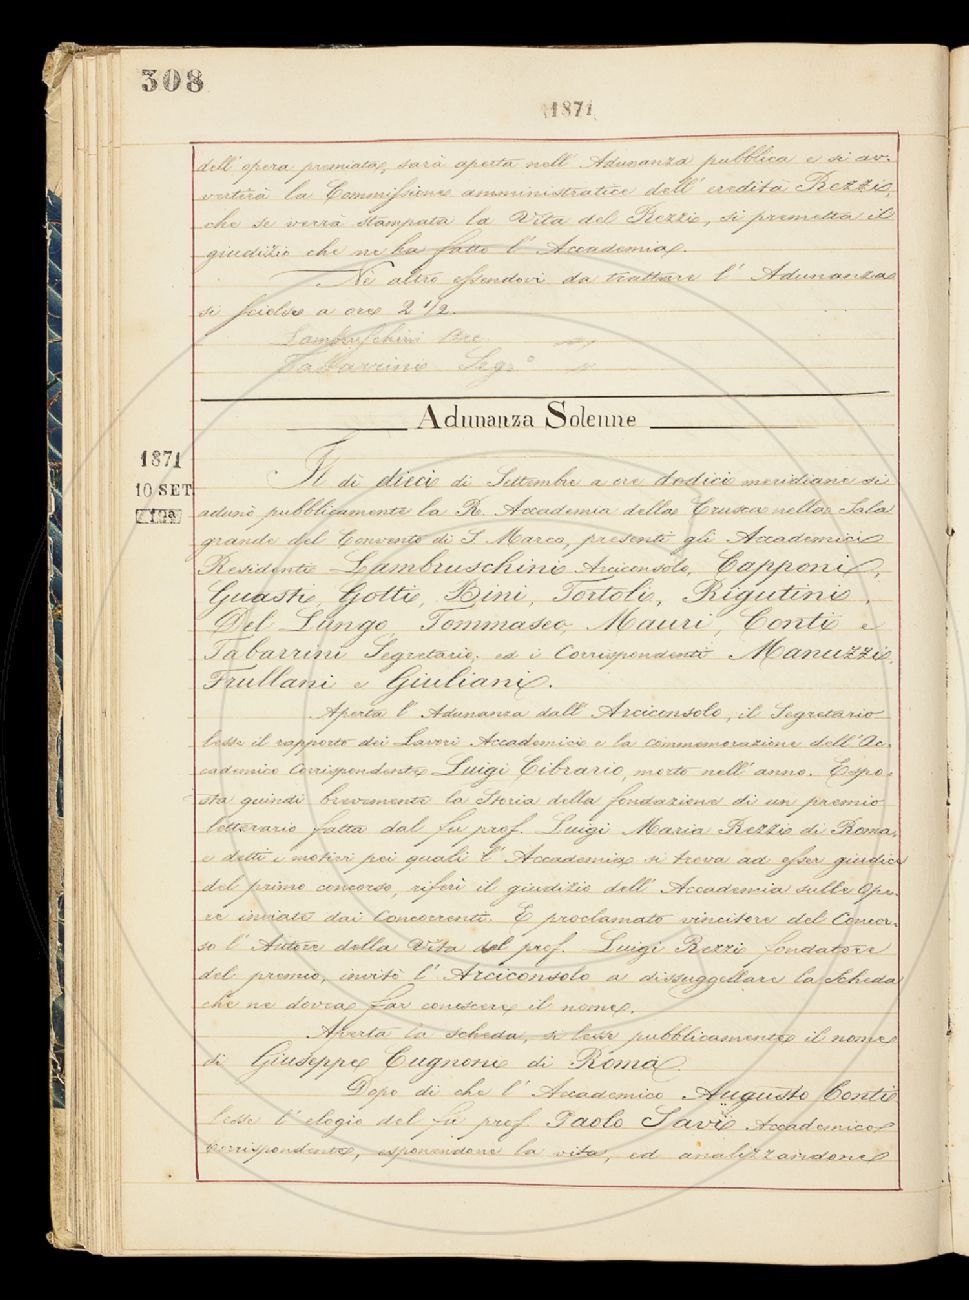 308
1871
dell' opera premiata, sarà aperta nell' Adunanza pubblica e si av-
vertirà la Commissione amministratrice dell' eredità Rezzi,
che se verrà stampata la Vita del Rezzi, si premetta il
giudizio che ne ha fatto l' Accademia.
Nè altro essendovi da trattare l' Adunanza
si sciolse a ore 2 1/2.
Lambruschini Arc.
Tabarrini Seg.º
Adunanza Solenne
1871
10 SET.
12ª
Il dì dieci di Settembre a ore dodici meridiane si
adunò pubblicamente la R. Accademia della Crusca nella Sala
grande del Convento di S. Marco, presenti gli Accademici
Residenti Lambruschini Arciconsolo, Capponi,
Guasti, Gotti, Bini, Tortoli, Rigutini,
Del Lungo, Tommaseo, Mauri, Conti e
Tabarrini Segretario, ed i Corrispondenti Manuzzi,
Frullani e Giuliani.
Aperta l' Adunanza dall' Arciconsolo, il Segretario
lesse il rapporto dei Lavori Accademici e la commemorazione dell' Ac-
cademico Corrispondente Luigi Cibrario, morto nell' anno. Espo-
sta quindi brevemente la Storia della fondazione di un premio
letterario fatta dal fu prof. Luigi Maria Rezzi di Roma,
e detti i motivi pei quali l' Accademia si trova ad esser giudice
del primo concorso, riferì il giudizio dell' Accademia sulle Ope-
re inviate dai Concorrenti. E proclamato vincitore del Concor-
so l' Autore della Vita del prof. Luigi Rezzi fondatore
del premio, invitò l' Arciconsolo a dissuggellare la Scheda
che ne dovea far conoscere il nome.
Aperta la scheda, si lesse pubblicamente il nome
di Giuseppe Cugnoni di Roma.
Dopo di che l' Accademico Augusto Conti
lesse l' elogio del fu prof. Paolo Savi Accademico
Corrispondente, esponendone la vita, ed analizzandone